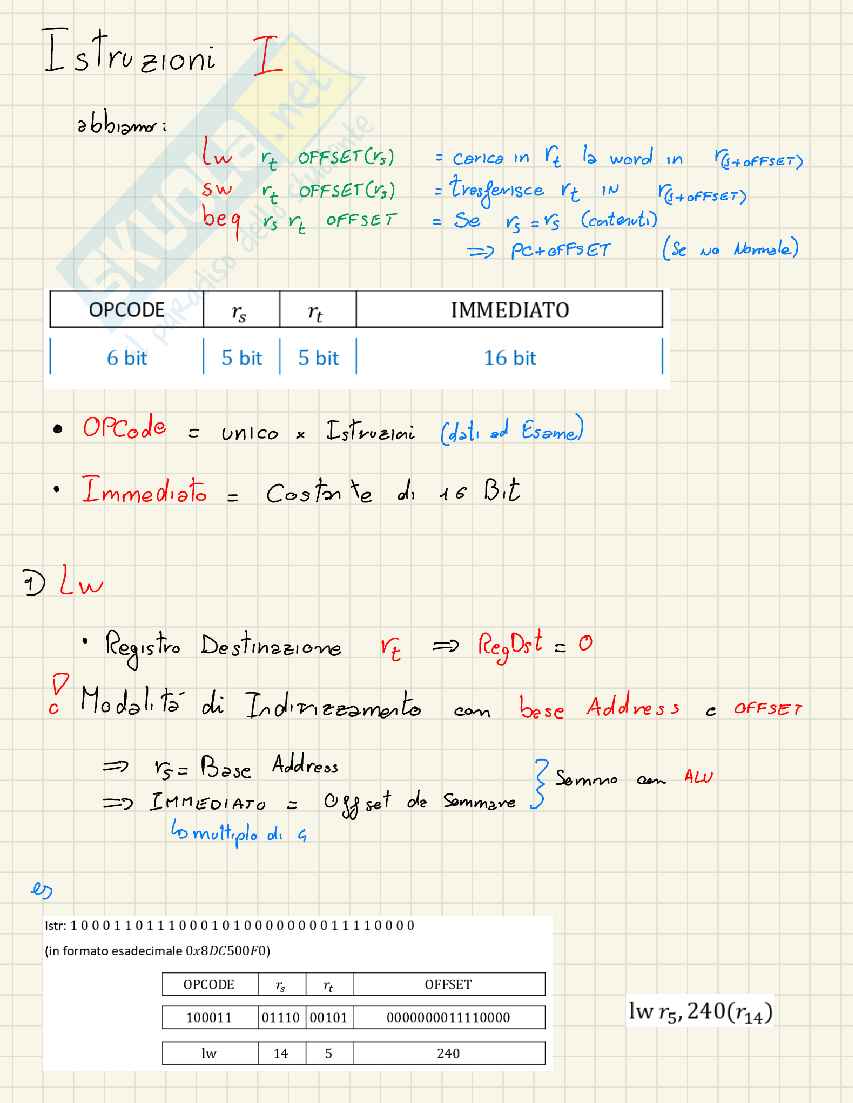 Istruzioni I
abbiamo:
lw rt OFFSET(rs) = carica in rt la word in r(s+OFFSET)
sw rt OFFSET(rs) = trasferisce rt IN r(s+OFFSET)
beq rs rt OFFSET = Se rs = rs (contenuti)
⇒ PC+OFFSET (Se no Normale)
OPCODE rs rt IMMEDIATO
6 bit 5 bit 5 bit 16 bit
• OPCode = unico × Istruzioni (dati ad Esame)
• Immediato = Costante di 16 Bit
1) Lw
• Registro Destinazione rt ⇒ RegDst = 0
! Modalità di Indirizzamento con base Address e OFFSET
⇒ rs = Base Address
⇒ IMMEDIATO = Offset da Sommare } Sommo con ALU
↳ multiplo di 4
es
Istr: 1 0 0 0 1 1 0 1 1 1 0 0 0 1 0 1 0 0 0 0 0 0 0 0 1 1 1 1 0 0 0 0
(in formato esadecimale 0x8DC500F0)
OPCODE rs rt OFFSET
100011 01110 00101 0000000011110000
lw r5, 240(r14)
lw 14 5 240
SKUOLA.net
il paradiso dello studente